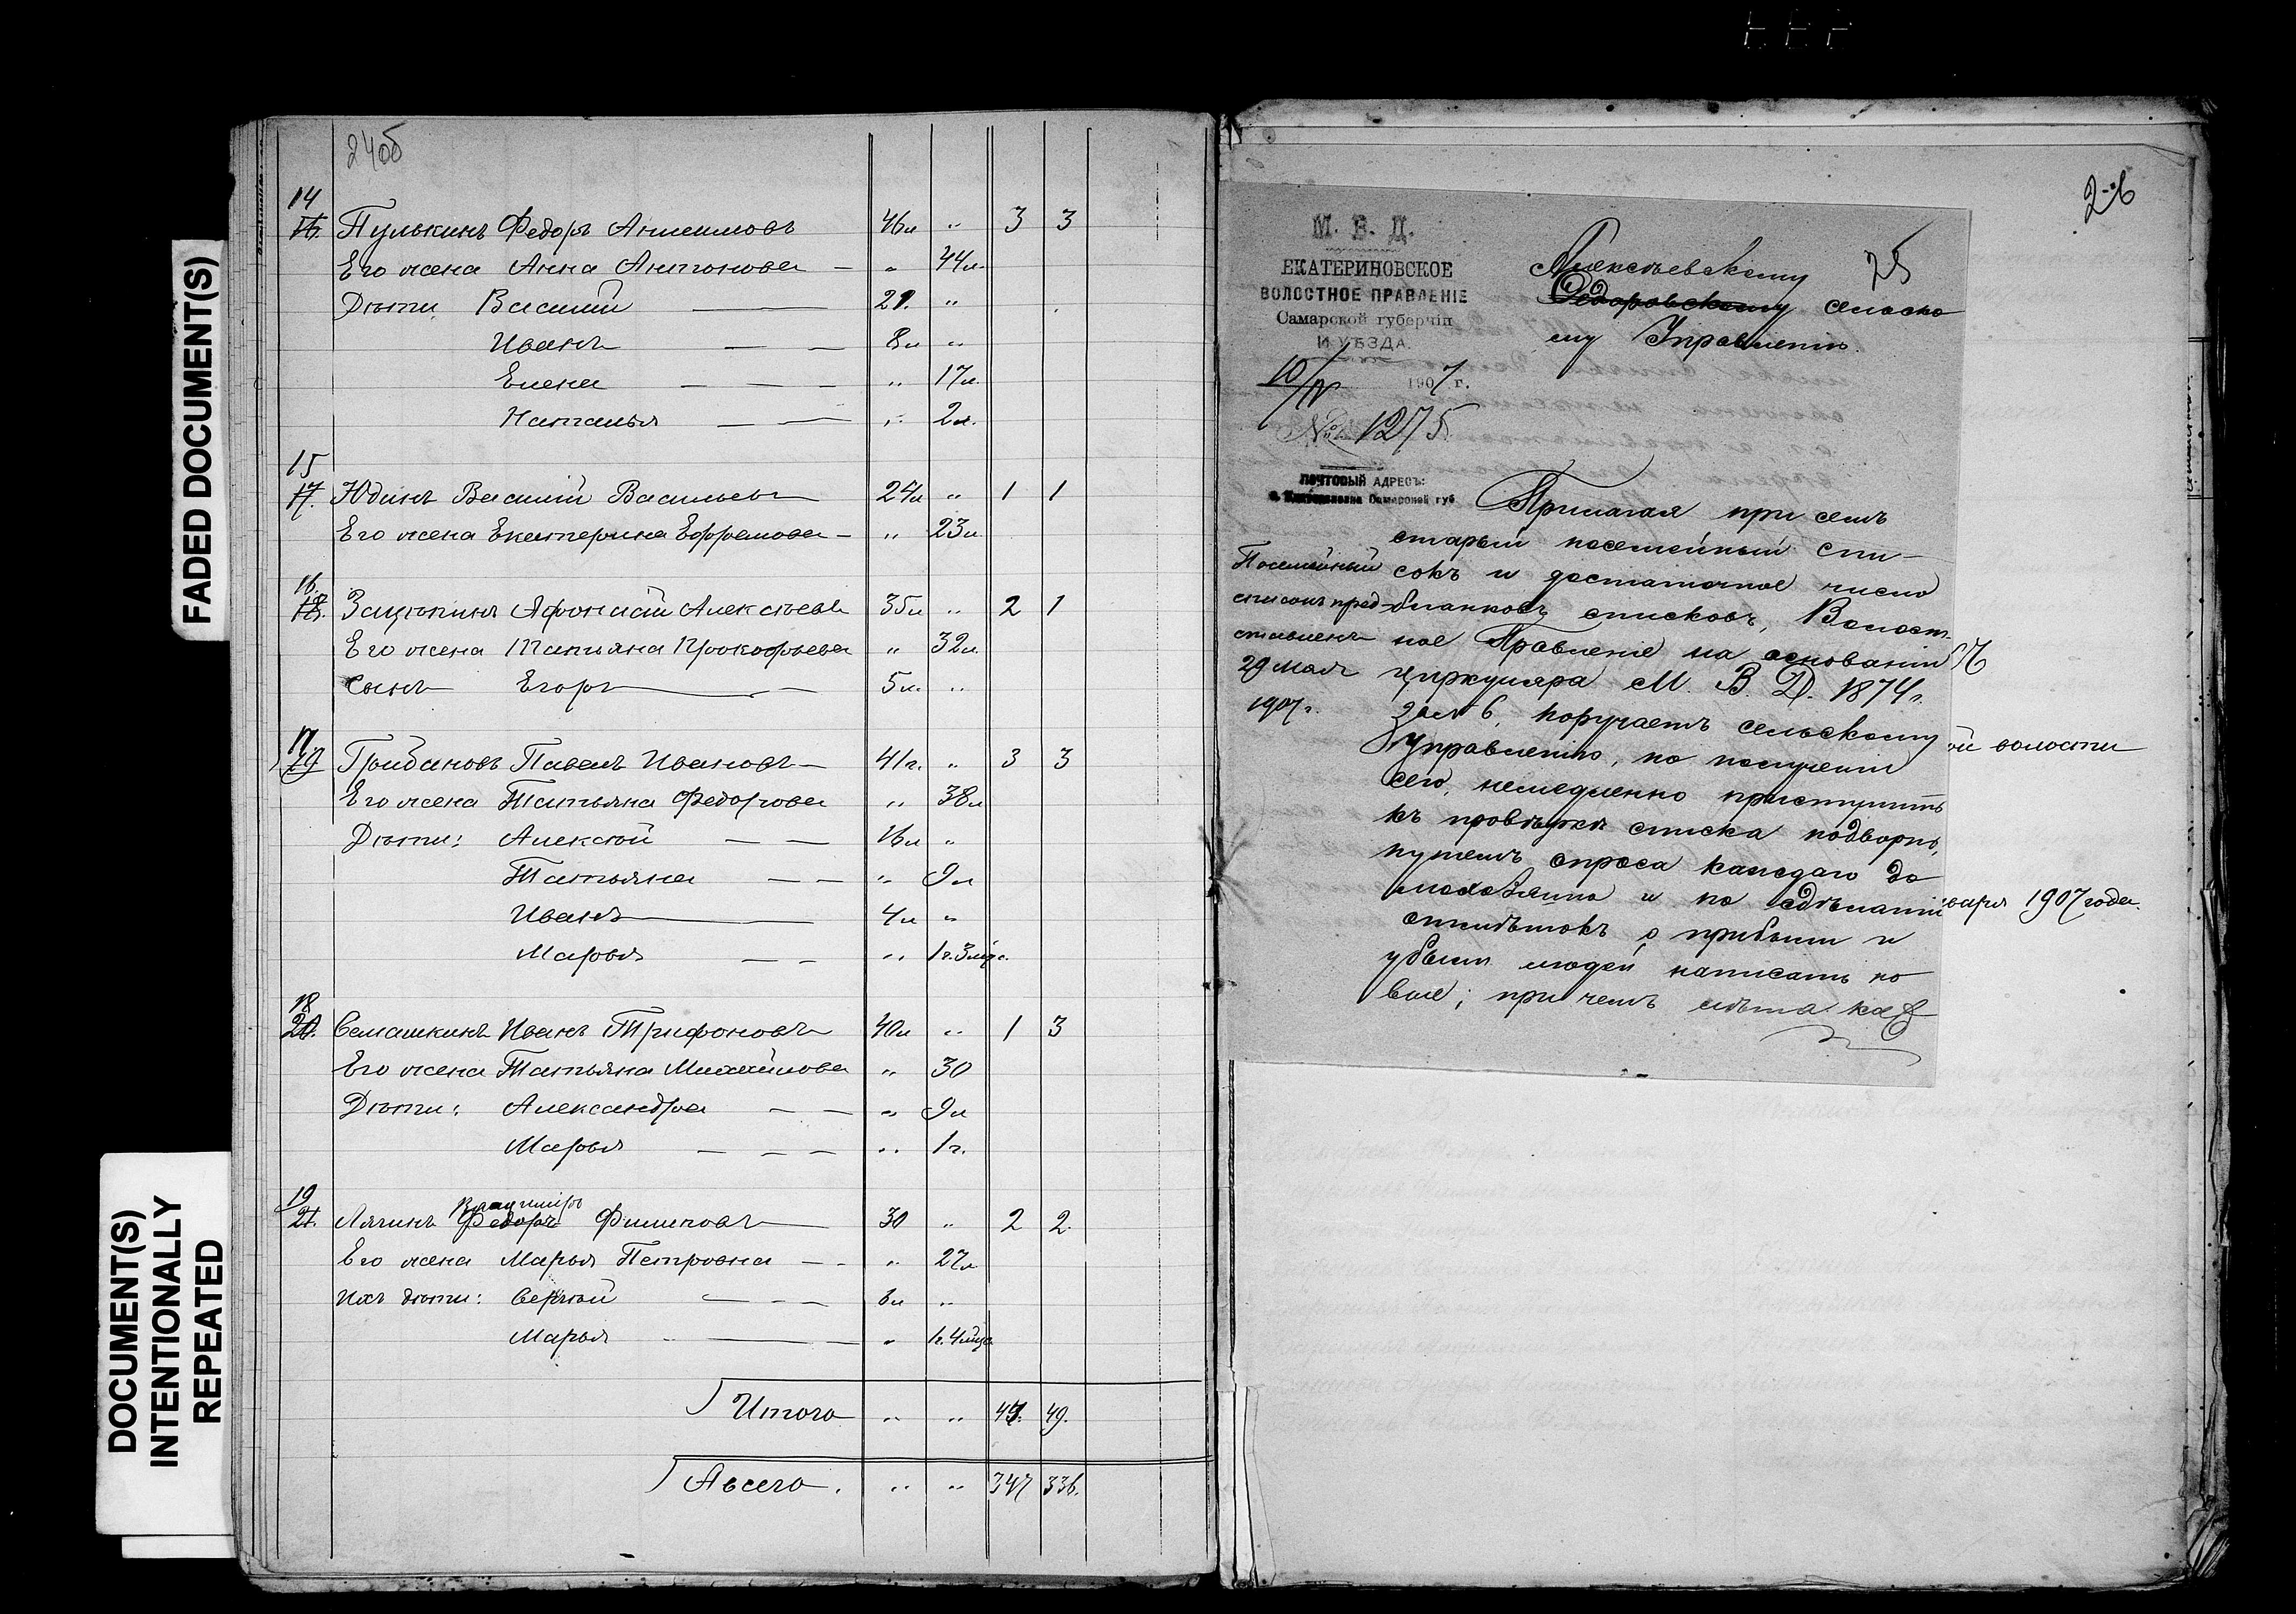 FADED DOCUMENT(S)
DOCUMENT(S)
INTENTIONALLY
REPEATED
24об
14
16. Пулькинъ Федоръ Анисимовъ 46л " 3 3
Его жена Анна Антонова — " 44л.
Дѣти Василій — 21. "
Иванъ — — 8л "
Елена — — — " 17л.
Наталья — — " 2л.
15
17. Юдинъ Василій Васильевъ 24л " 1 1
Его жена Екатерина Ефремова — " 23л
16.
18. Зацѣпинъ Афонасій Алексѣевъ 35л " 2 1
Его жена Татьяна Прокофьева " 32л
Сынъ Егоръ — — 5л. "
17
19 Грибановъ Павелъ Ивановъ — 41г. " 3 3
Его жена Татьяна Федорова " 38л
Дѣти: Алексѣй — — 16л "
Татьяна — — " 9л
Иванъ — 4л "
Марья — — " 1г.3мца.
18
20. Семашкинъ Иванъ Трифоновъ 40л " 1 3
Его жена Татьяна Михайлова " 30
Дѣти: Александра — — " 9л
Марья — — — " 1г.
19
Владиміръ
21. Лячинъ Федоръ Филиповъ 30 " 2 2.
Его жена Марья Петровна — - " 27л
Ихъ дѣти: Сергѣй — — — 6л "
Марья — " 1г.4мца
Итого " " 47. 49.
Авсего. " " 347 336.
26
М. В. Д.
ЕКАТЕРИНОВСКОЕ
ВОЛОСТНОЕ ПРАВЛЕНІЕ
Самарской губерніи
И УѢЗДА.
10/IV 1907 г.
№ 1275
ПОЧТОВЫЙ АДРЕСЪ:
Самарской губ
25
Алексѣевскому
Федоровскому сельско
му Управленію.
Прилагая при семъ
старый посемейный спи-
сокъ и достаточное число
бланковъ списковъ, Волост-
ное Правленіе на основаніи
циркуляра М. В. Д. 1874 г.
за № 6, поручаетъ сельскому
Управленію, по полученіи
сего, немедленно приступить
къ провѣркѣ списка подворно,
путемъ опроса каждаго до
мохозяина и по сдѣланіи
отмѣтокъ о прибыли и
убыли людей написать но
вые; при чемъ лѣта каж
Посемейный
списокъ пред-
ставленъ
29 мая
1907 г.
ой волости
варя 1907 года.